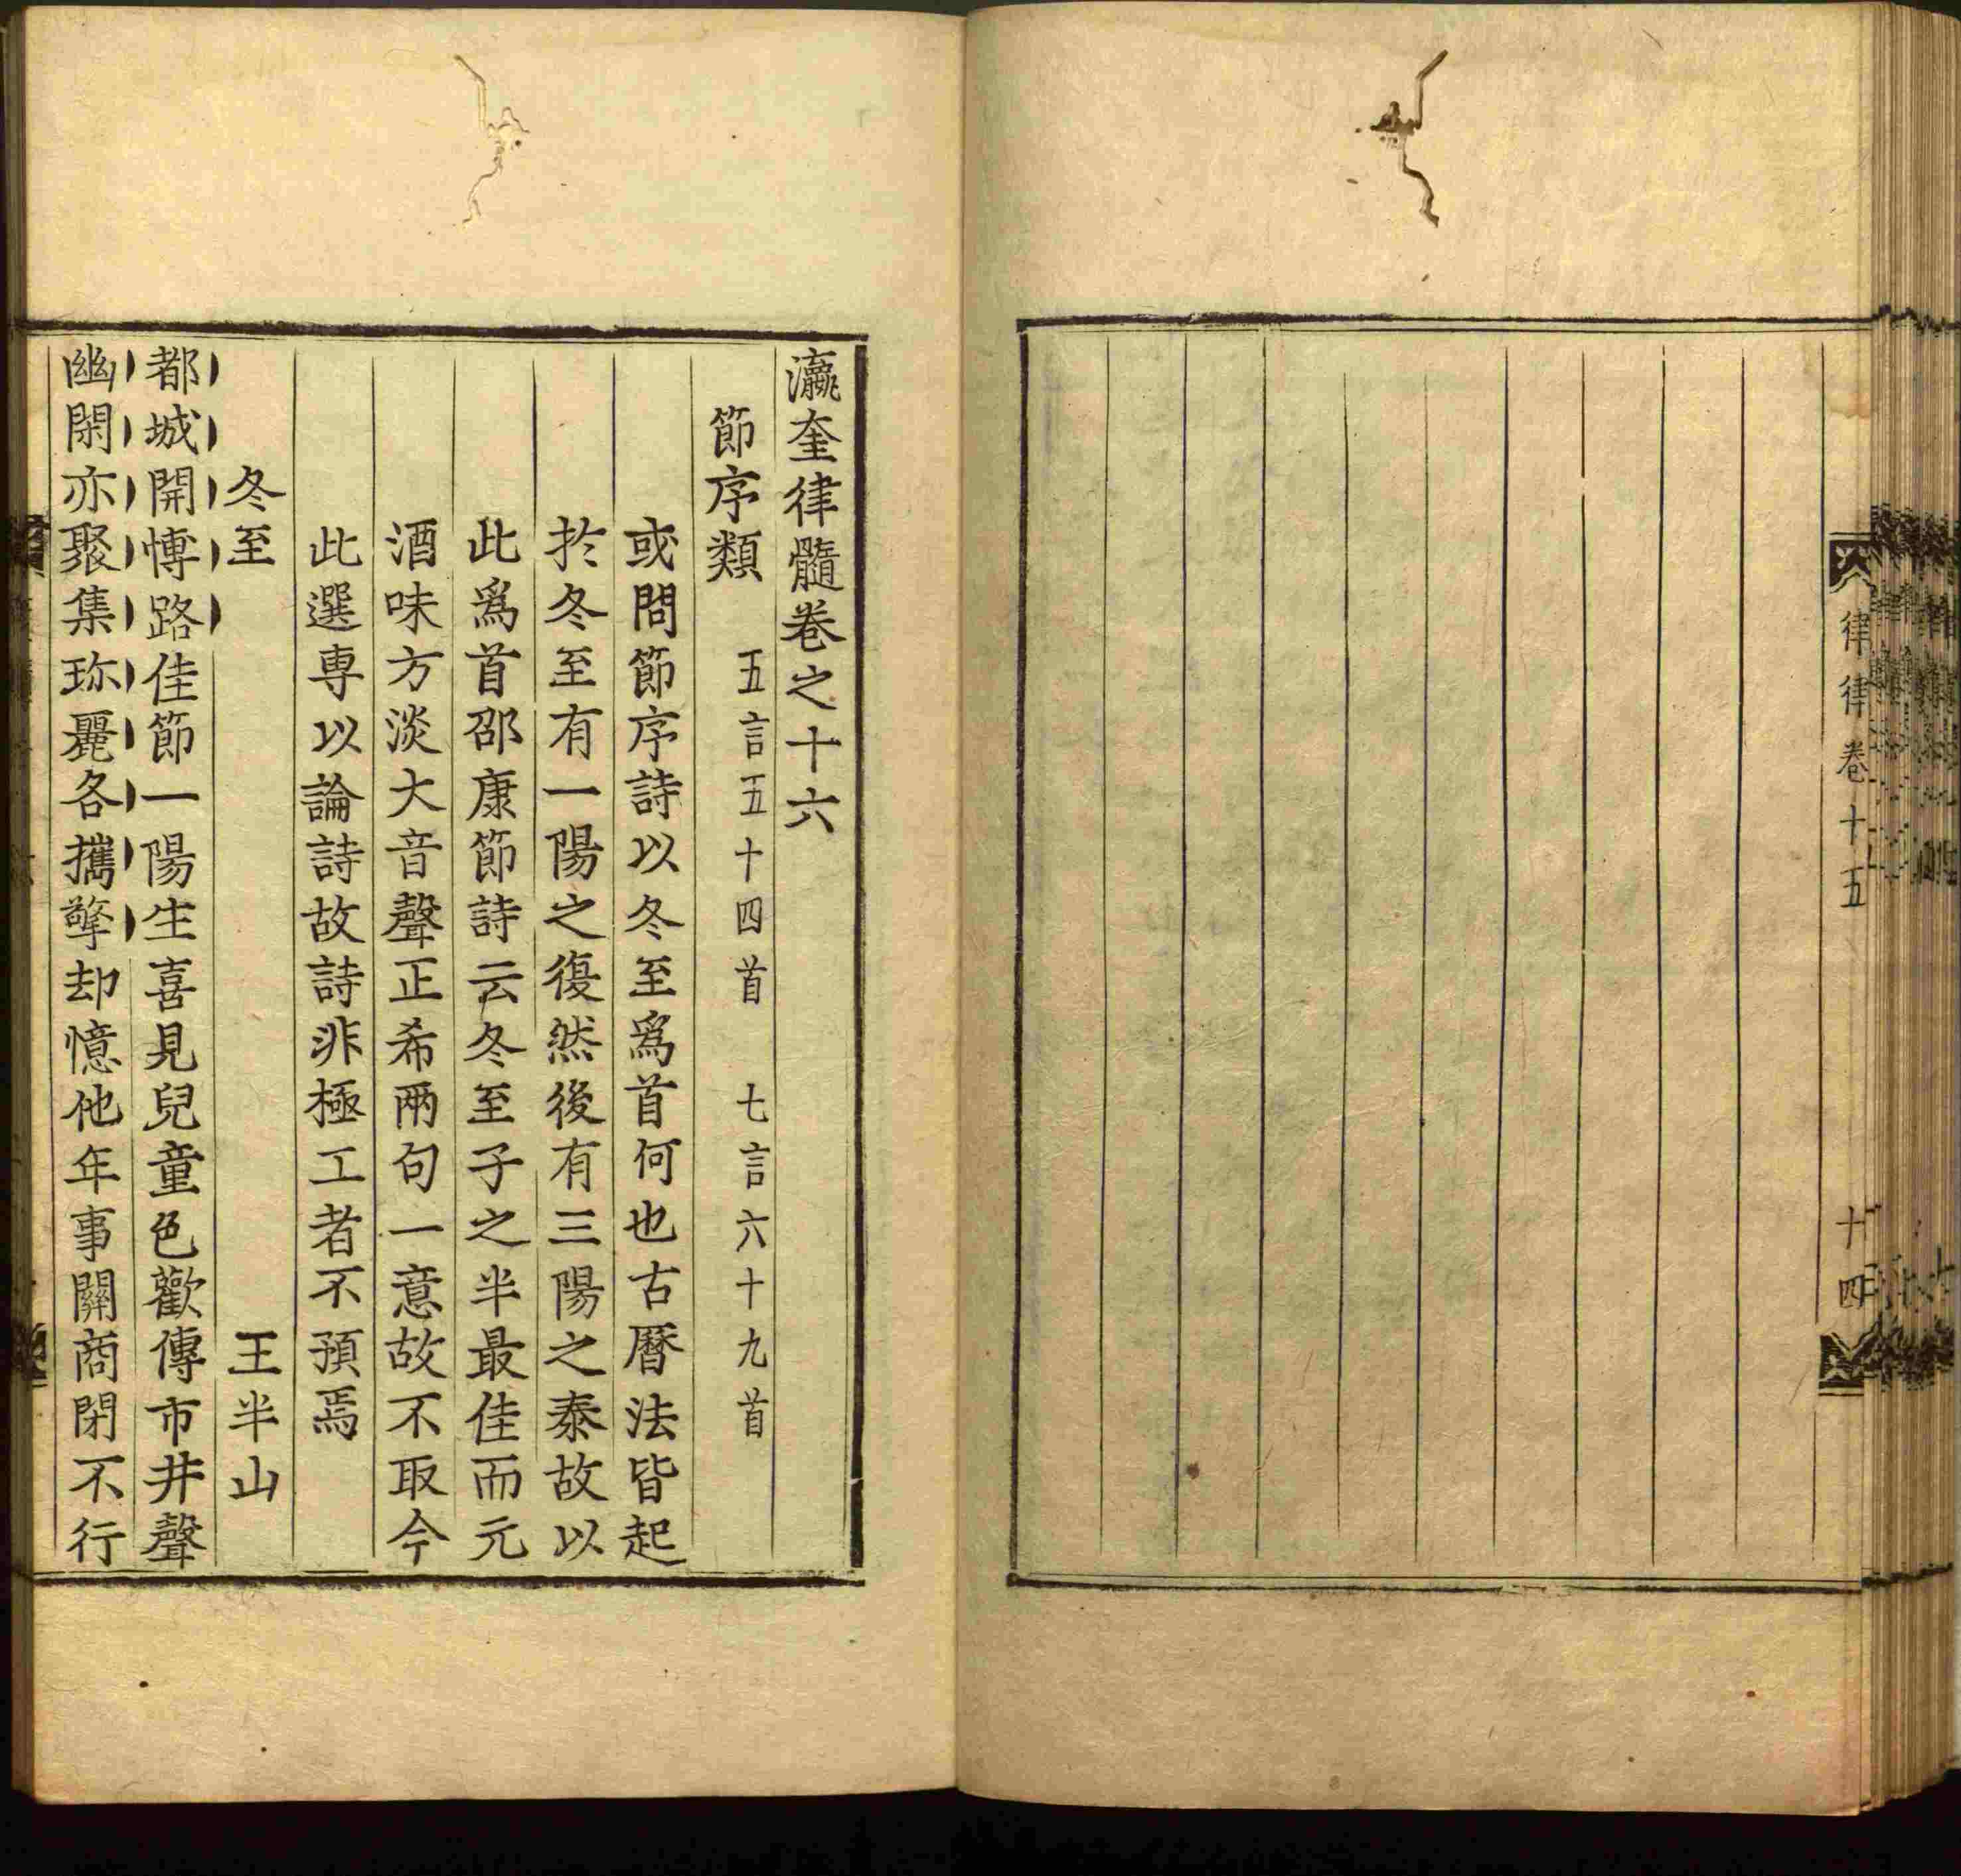 律律卷十五
十四
瀛奎律髓卷之十六
節序類 五言五十四首 七言六十九首
或問節序詩以冬至爲首何也古曆法皆起
扵冬至有一陽之復然後有三陽之泰故以
此爲首邵康節詩云冬至子之半最佳而元
酒味方淡大音聲正希兩句一意故不取今
此選専以論詩故詩非極工者不預焉
冬至 王半山
都城開愽路佳節一陽生喜見兒童色歡傳市井聲
幽閑亦聚集珎麗各攜擎却憶他年事關商閉不行